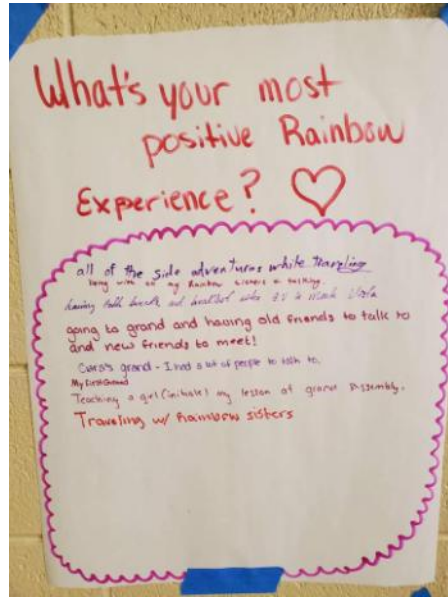 What's your most
positive Rainbow
Experience?
all of the side adventures while traveling
being with all my Rainbow sisters & talking.
having
going to grand and having old friends to talk to
and new friends to meet!
grand - I had a lot of people to talk to.
My first Grand
Teaching a girl (initiate) my lesson at grand Assembly.
Traveling w/ Rainbow sisters